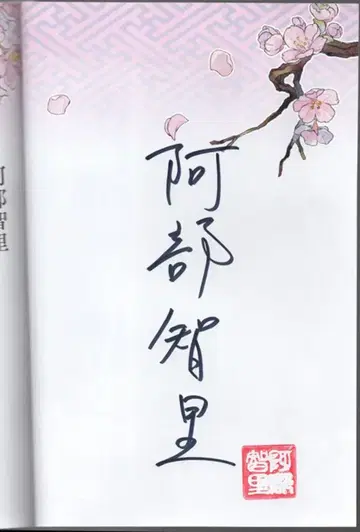 阿部智里
阿部智里
阿部
智里